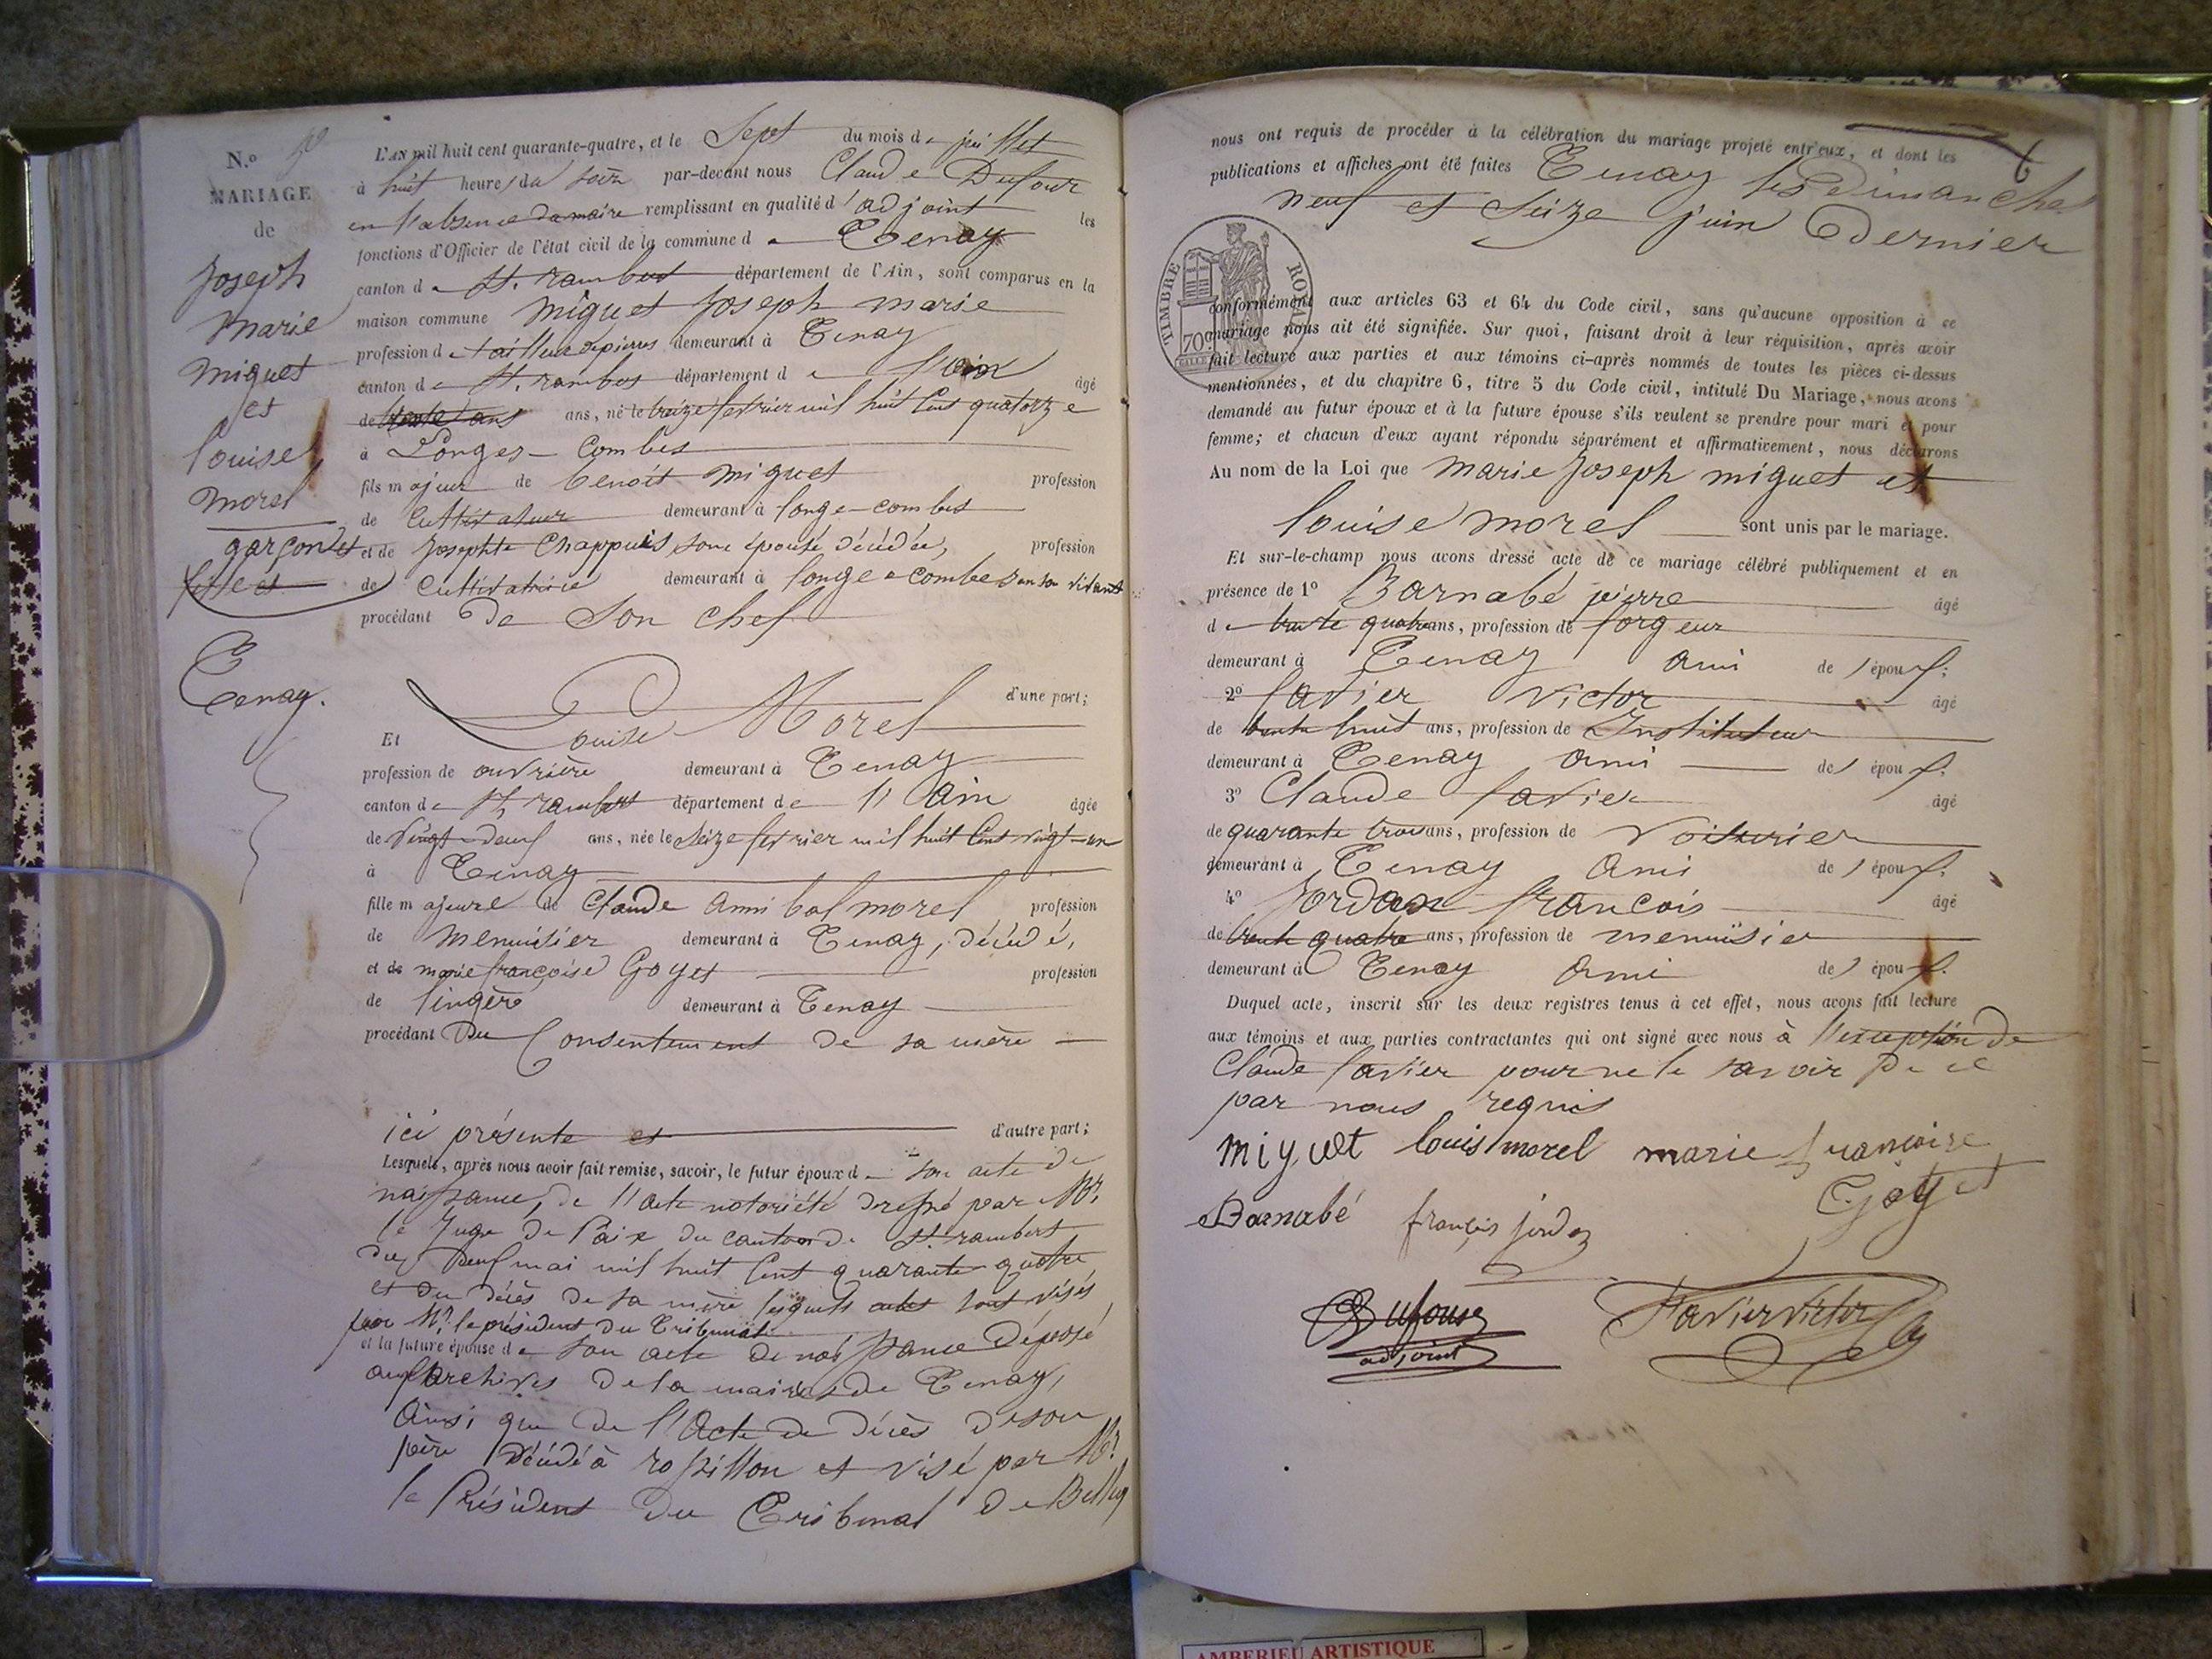 N.o
MARIAGE
de
Joseph
marie
miguet
et
louise
morel
garçon et
fille et
Tenay.
L'AN mil huit cent quarante-quatre, et le Sept du mois de juillet
à huit heures du soir par-devant nous Claude Dufour
en l'absence du maire remplissant en qualité d'adjoint les
fonctions d'Officier de l'état civil de la commune de Tenay
canton de St. rambert département de l'Ain, sont comparus en la
maison commune miguet Joseph marie
profession de tailleur de pierres demeurant à Tenay
canton de St. rambert département de l'ain âgé
de trente ans ans, né le treize février mil huit cent quatorze
à Longes-Combes
fils majeur de benoît miguet profession
de Cultivateur demeurant à longe-combes
et de Josephte Chappuis, son épouse décédée, profession
de Cultivatrice demeurant à longe-combes en son vivant
procédant De Son chef
d'une part;
Et Louise Morel
profession de ouvrière demeurant à Tenay
canton de St, rambert département de l'Ain âgée
de vingt-deux ans, née le Seize février mil huit Cent vingt-un
à Tenay
fille majeure de Claude annibal morel profession
de menuisier demeurant à Tenay, décédé,
et de marie françoise Goyet profession
de lingère demeurant à Tenay
procédant Du Consentement de sa mère
ici présente et d'autre part;
Lesquels, après nous avoir fait remise, savoir, le futur époux de son acte de
naissance, de l'acte notoriété dressé par Mr.
le Juge de Paix du canton de St. rambert
du neuf mai mil huit Cent quarante quatre
et du décès de sa mère lesquels actes sont visés
par Mr. le président du Tribunal
et la future épouse de son acte de naissance déposé
aux archives de la mairie de Tenay,
ainsi que de l'Acte de décès de son
père Décédé à rossillon et visé par Mr.
le Président du Tribunal de Belley
nous ont requis de procéder à la célébration du mariage projeté entr'eux, et dont les
publications et affiches ont été faites Tenay les Dimanches
neuf et Seize juin Dernier
TIMBRE ROYAL
70c
conformément aux articles 63 et 64 du Code civil, sans qu'aucune opposition à ce
mariage nous ait été signifiée. Sur quoi, faisant droit à leur réquisition, après avoir
fait lecture aux parties et aux témoins ci-après nommés de toutes les pièces ci-dessus
mentionnées, et du chapitre 6, titre 5 du Code civil, intitulé Du Mariage, nous avons
demandé au futur époux et à la future épouse s'ils veulent se prendre pour mari et pour
femme; et chacun d'eux ayant répondu séparément et affirmativement, nous déclarons
Au nom de la Loi que marie Joseph miguet et
louise morel sont unis par le mariage.
Et sur-le-champ nous avons dressé acte de ce mariage célébré publiquement et en
présence de 1o Barnabé pierre âgé
de trente quatre ans, profession de forgeur
demeurant à Tenay ami de l'époux.
2o favier Victor âgé
de trente huit ans, profession de Instituteur
demeurant à Tenay ami de l'époux.
3o Claude favier âgé
de quarante trois ans, profession de Voiturier
demeurant à Tenay ami de l'époux.
4o Jordan françois âgé
de trente quatre ans, profession de menuisier
demeurant à Tenay ami de l'époux.
Duquel acte, inscrit sur les deux registres tenus à cet effet, nous avons fait lecture
aux témoins et aux parties contractantes qui ont signé avec nous à l'exception de
Claude favier pour ne le savoir de ce
par nous requis
miguet louis morel marie françoise
Goyet
Barnabé françois jordan
Dufour
adjoint
Favier victor
AMBERIEU ARTISTIQUE